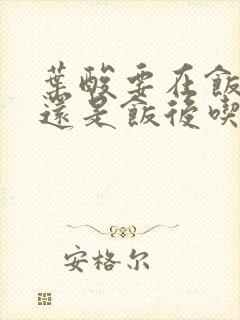 葉酸要在飯
還是飯後喫
安格尔